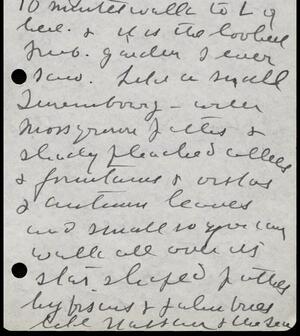 10 minutes walk to L g
here. & it is the loveliest
pub. garden I ever
saw. Like a small
Luxembourg - with
Mossgrown paths &
shady pleached allees
& fountains & vistas
& autumn leaves
and small so you can
walk all over its
star shaped paths
hybiscus & palm trees
like Nassau & the sea